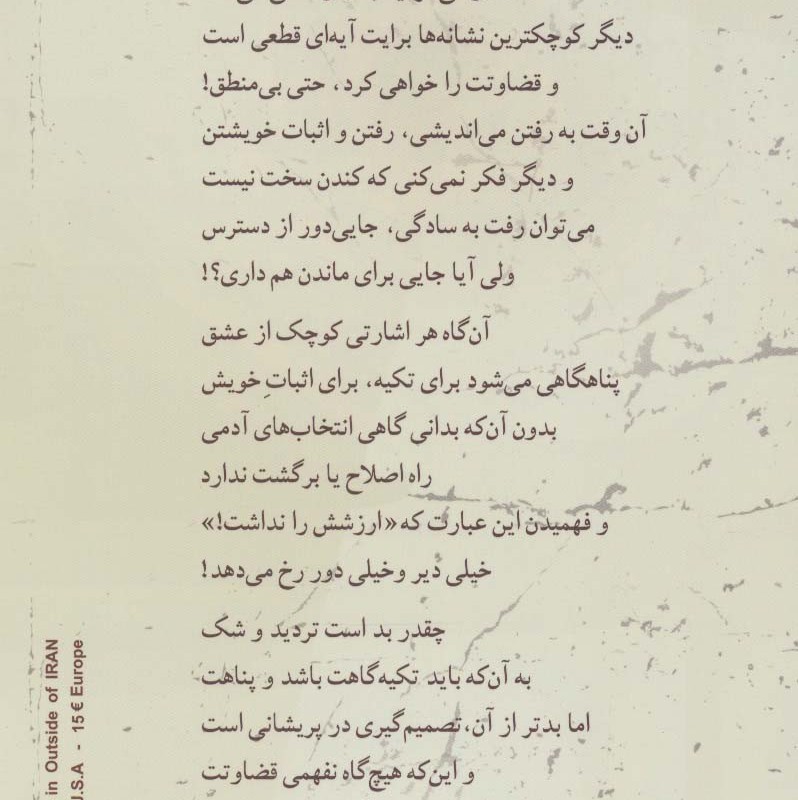 دیگر کوچکترین نشانه‌ها برایت آیه‌ای قطعی است
و قضاوتت را خواهی کرد، حتی بی‌منطق!
آن وقت به رفتن می‌اندیشی، رفتن و اثبات خویشتن
و دیگر فکر نمی‌کنی که کندن سخت نیست
می‌توان رفت به سادگی، جایی‌دور از دسترس
ولی آیا جایی برای ماندن هم داری؟!
آن‌گاه هر اشارتی کوچک از عشق
پناهگاهی می‌شود برای تکیه، برای اثباتِ خویش
بدون آن‌که بدانی گاهی انتخاب‌های آدمی
راه اصلاح یا برگشت ندارد
و فهمیدن این عبارت که «ارزشش را نداشت!»
خیلی دیر و خیلی دور رخ می‌دهد!
چقدر بد است تردید و شک
به آن‌که باید تکیه‌گاهت باشد و پناهت
اما بدتر از آن، تصمیم‌گیری در پریشانی است
و این‌که هیچ‌گاه نفهمی قضاوتت
in Outside of IRAN
U.S.A - 15 € Europe